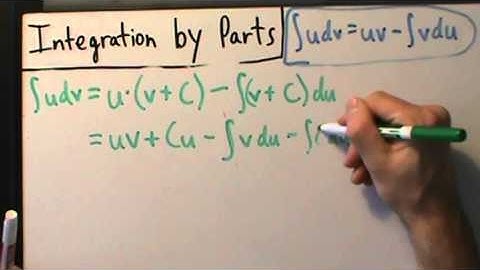 Integration by Parts
∫udv = uv - ∫vdu
∫udv = u·(v+C) - ∫(v+C)du
= uv + Cu - ∫vdu - ∫